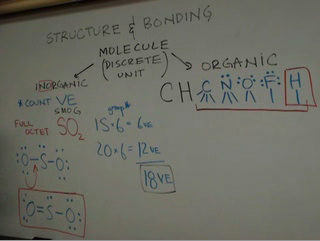 STRUCTURE & BONDING
MOLECULE
(DISCRETE)
UNIT
INORGANIC
ORGANIC
* COUNT VE
SMOG
FULL OCTET
SO2
group#
1S·6 = 6VE
2O·6 = 12VE
18VE
:O-S-O:
O=S-O:
CH C N O F H